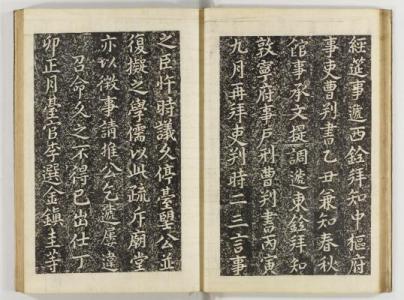 經筵事遞西銓拜知中樞府
事吏曹判書乙丑兼知春秋
館事承文提調遞東銓拜知
敦寧府事戶刑曹判書丙寅
九月再拜吏判時二三言事
之臣忤時議久倶臺望公並
復擬之學儒以此疏斥廟堂
亦以徵事請推公乞遞屢違
召命久之不得已出仕丁
卯正月臺官李選金鎭圭等